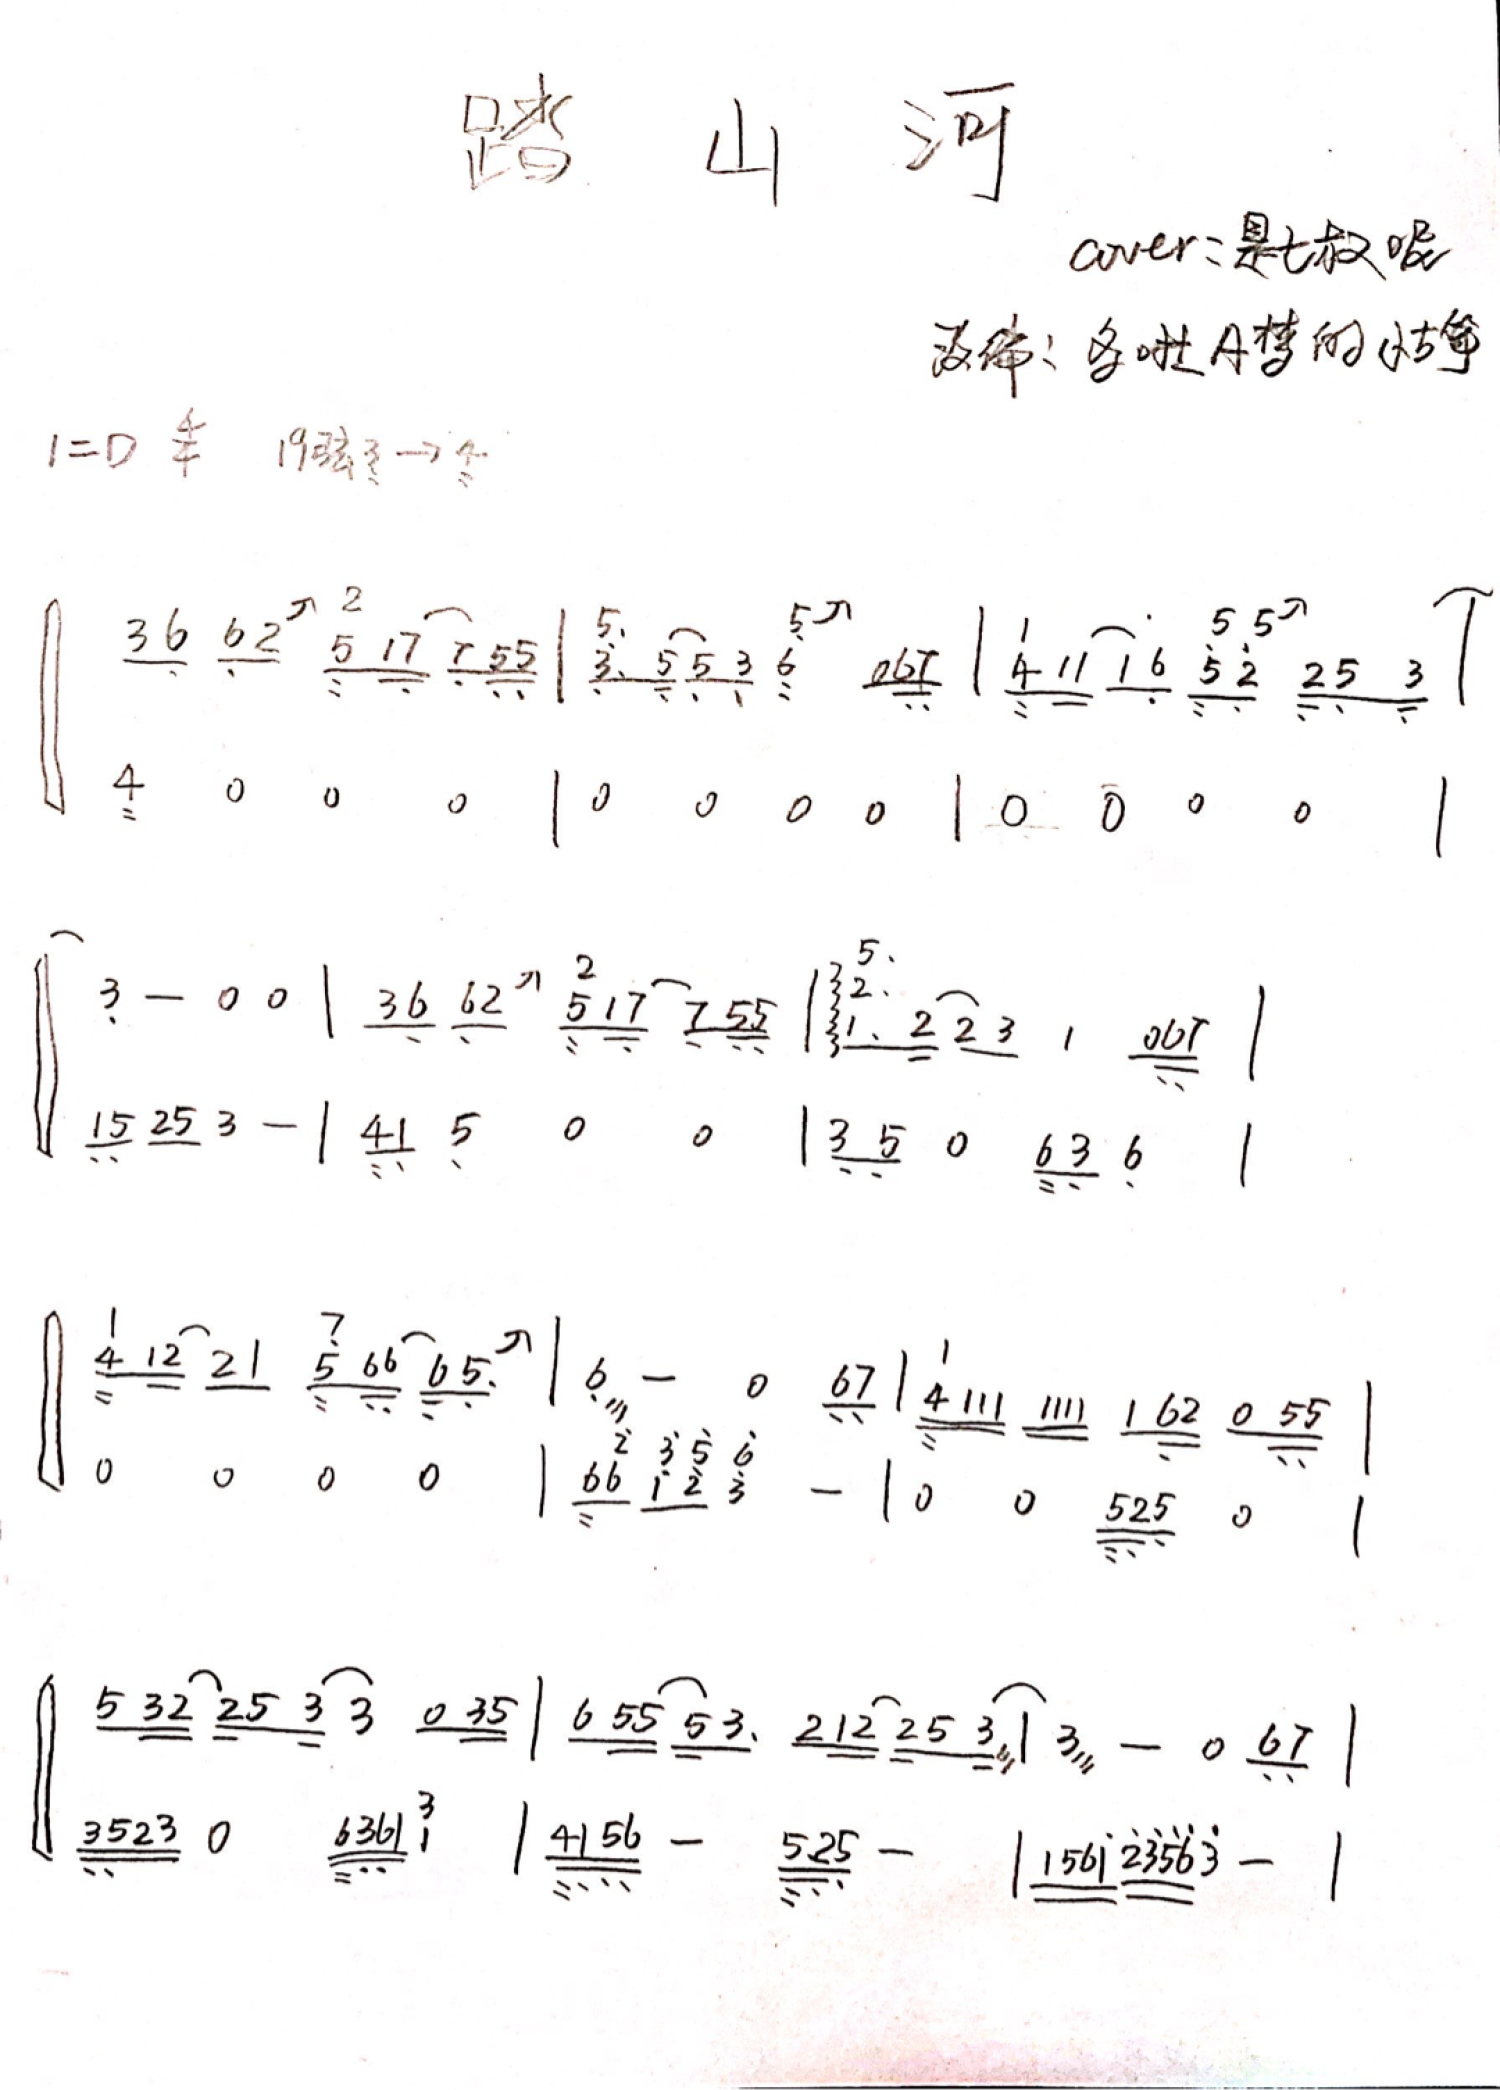 踏 山 河
cover:是七叔呢
改编:多啦A梦的古筝
1=D 4/4 19弦3→4
36 62 2 5 17 7 55 | 5. 3. 5 5 3 5 6 067 | 1 4 11 16 5 5 5 2 25 3 |
4 0 0 0 | 0 0 0 0 | 0 0 0 0 |
3 — 0 0 | 36 62 2 5 17 7 55 | 5. 2. 1. 2 2 3 1 067 |
15 25 3 — | 41 5 0 0 | 3 5 0 63 6 |
1 4 12 21 7 5 66 65. | 6 — 0 67 | 1 4 111 1111 1 62 0 55 |
0 0 0 0 | 66 2 1 3 5 2 6 3 — | 0 0 525 0 |
5 32 25 3 3 0 35 | 6 55 53. 212 25 3 | 3 — 0 67 |
3523 0 6361 3 1 | 4156 — 525 — | 1561 23563 — |